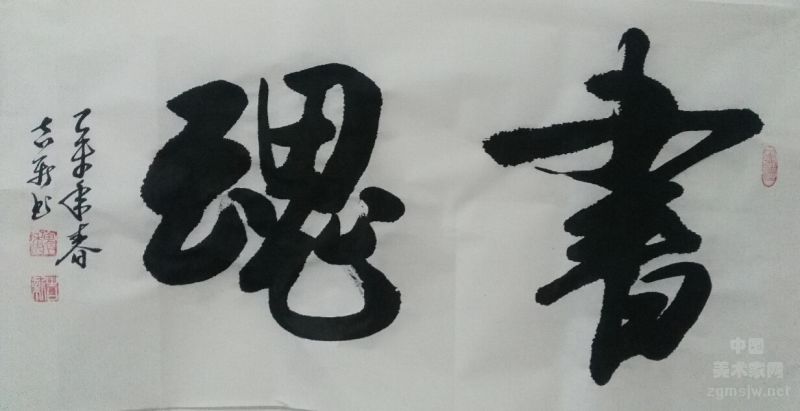 書魂
乙未年春
中国
美术家网
zgmsjw.net